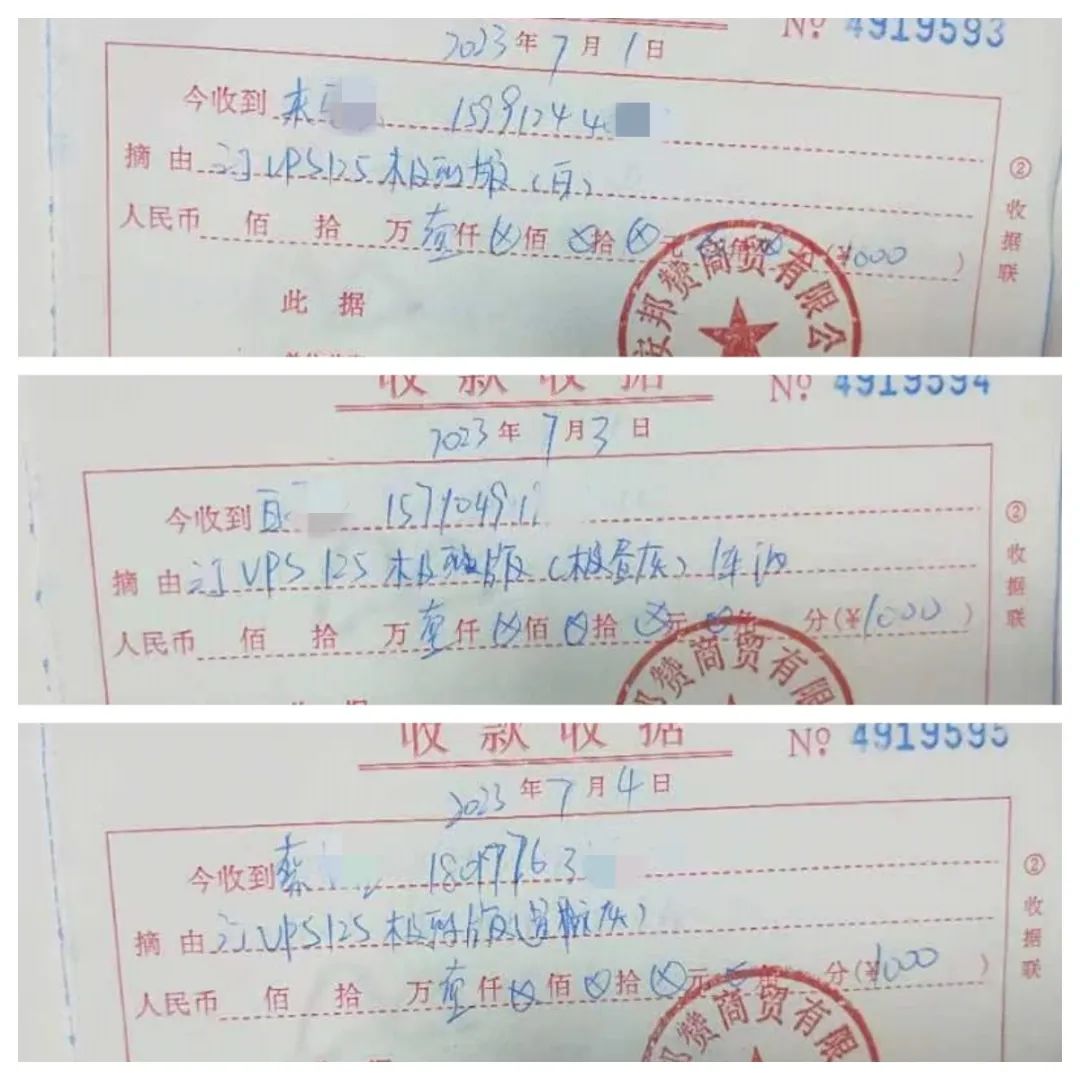 No 4919593
2023年7月1日
今收到 15991244
摘由 订VPS125极致版(白)
人民币 佰 拾 万壹仟⊗佰⊗拾⊗元⊗角⊗分(¥1000)
此据
②收据联
安邦赞商贸有限公
收款收据
No 4919594
2023年7月3日
今收到
摘由 订VPS125极致版(极蛋灰)
人民币 佰 拾 万壹仟⊗佰⊗拾⊗元⊗角 分(¥1000)
②收据联
邦赞商贸有限
收款收据
No 4919595
2023年7月4日
今收到蔡
摘由 订VPS125极致版
人民币 佰 拾 万壹仟⊗佰⊗拾⊗元⊗角 分(¥1000)
②收据联
邦赞商贸有限